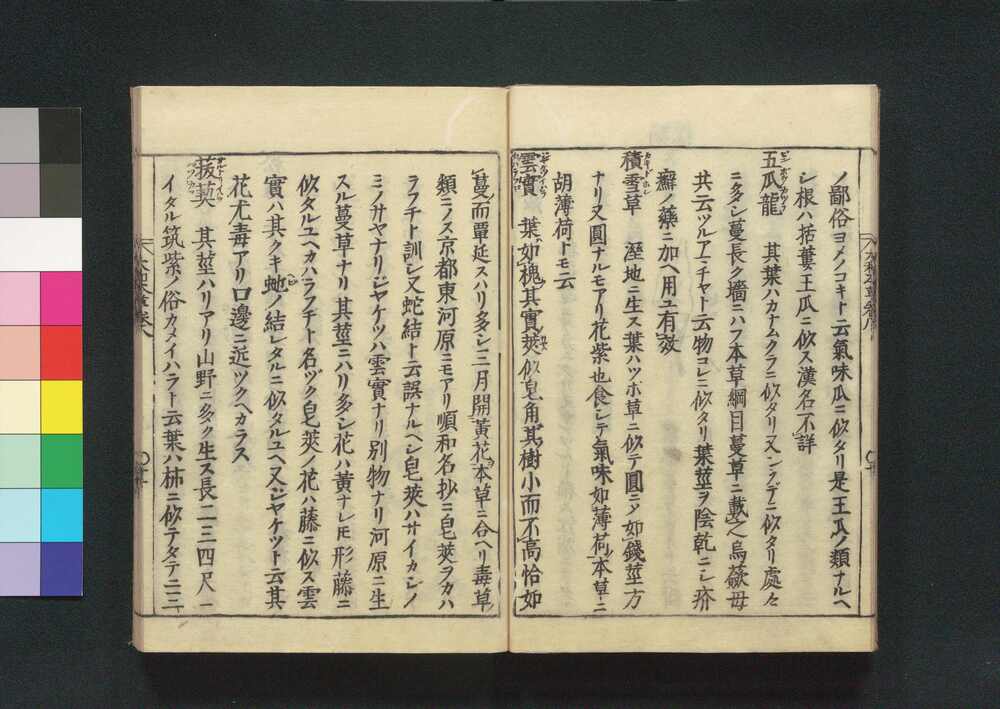 ノ鄙俗ヨメノコキト云氣味瓜ニ似タリ是王瓜ノ類ナルヘ
シ根ハ括蔞王瓜ニ似ス漢名不詳
五瓜龍 其葉ハカナムクラニ似タリ又シクデニ似タリ處々
ニ多シ蔓長ク墻ニハフ本草綱目蔓草ニ載之烏蘞毋
共云ツルアマチヤト云物コレニ似タリ葉莖ヲ陰乾ニシ疥
癬ノ藥ニ加ヘ用ユ有效
積雪草 溼地ニ生ス葉ハツボ草ニ似テ圓ニメ如錢莖方
ナリ又圓ナルモアリ花紫也食シテ氣味如薄荷本草ニ
胡薄荷トモ云
雲實 葉如槐其實莢似皂角其樹小而不高恰如
蔓而覃延スハリ多シ三月開黃花本草ニ合ヘリ毒草
類ニノス京都東河原ニモアリ順和名抄ニ皂莢ヲカハ
ラフチト訓シ又蛇結ト云誤ナルヘシ皂莢ハサイカシノ
ミノサヤナリジヤケツハ雲實ナリ別物ナリ河原ニ生
スル蔓草ナリ其莖ニハリ多シ花ハ黃ナレ𪜈形藤ニ
似タルユヘカハラフチト名ヅク皂莢ノ花ハ藤ニ似ス雲
實ハ其クキ虵ノ結レタルニ似タルユヘ又ジヤケツト云其
花尤毒アリ口邊ニ近ツクヘカラス
菝葜 其莖ハリアリ山野ニ多ク生ス長二三四尺ニ
イタル筑紫ノ俗カメイハラト云葉ハ柿ニ似テタテニ三